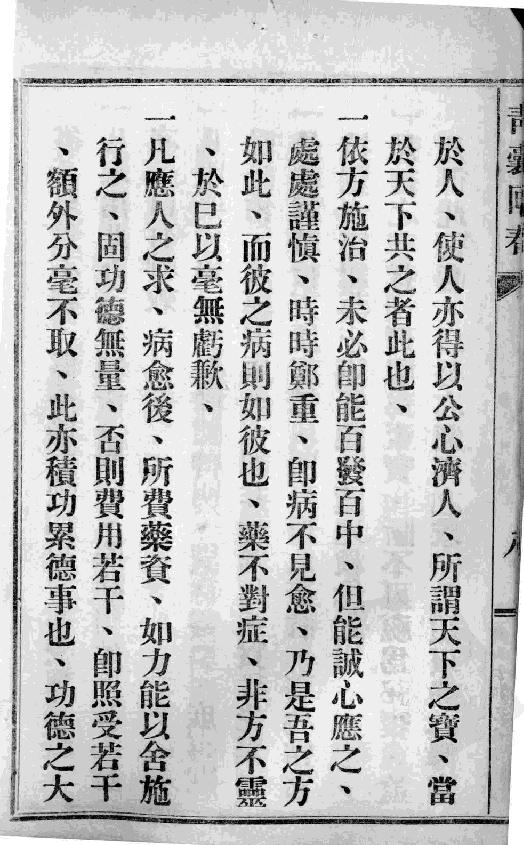 於人、使人亦得以公心濟人、所謂天下之寶、當
於天下共之者此也、
一依方施治、未必卽能百發百中、但能誠心應之、
處處謹慎、時時鄭重、卽病不見愈、乃是吾之方
如此、而彼之病則如彼也、藥不對症、非方不靈
、於巳以毫無虧歉、
一凡應人之求、病愈後、所費藥資、如力能以舍施
行之、固功德無量、否則費用若干、卽照受若干
、額外分毫不取、此亦積功累德事也、功德之大